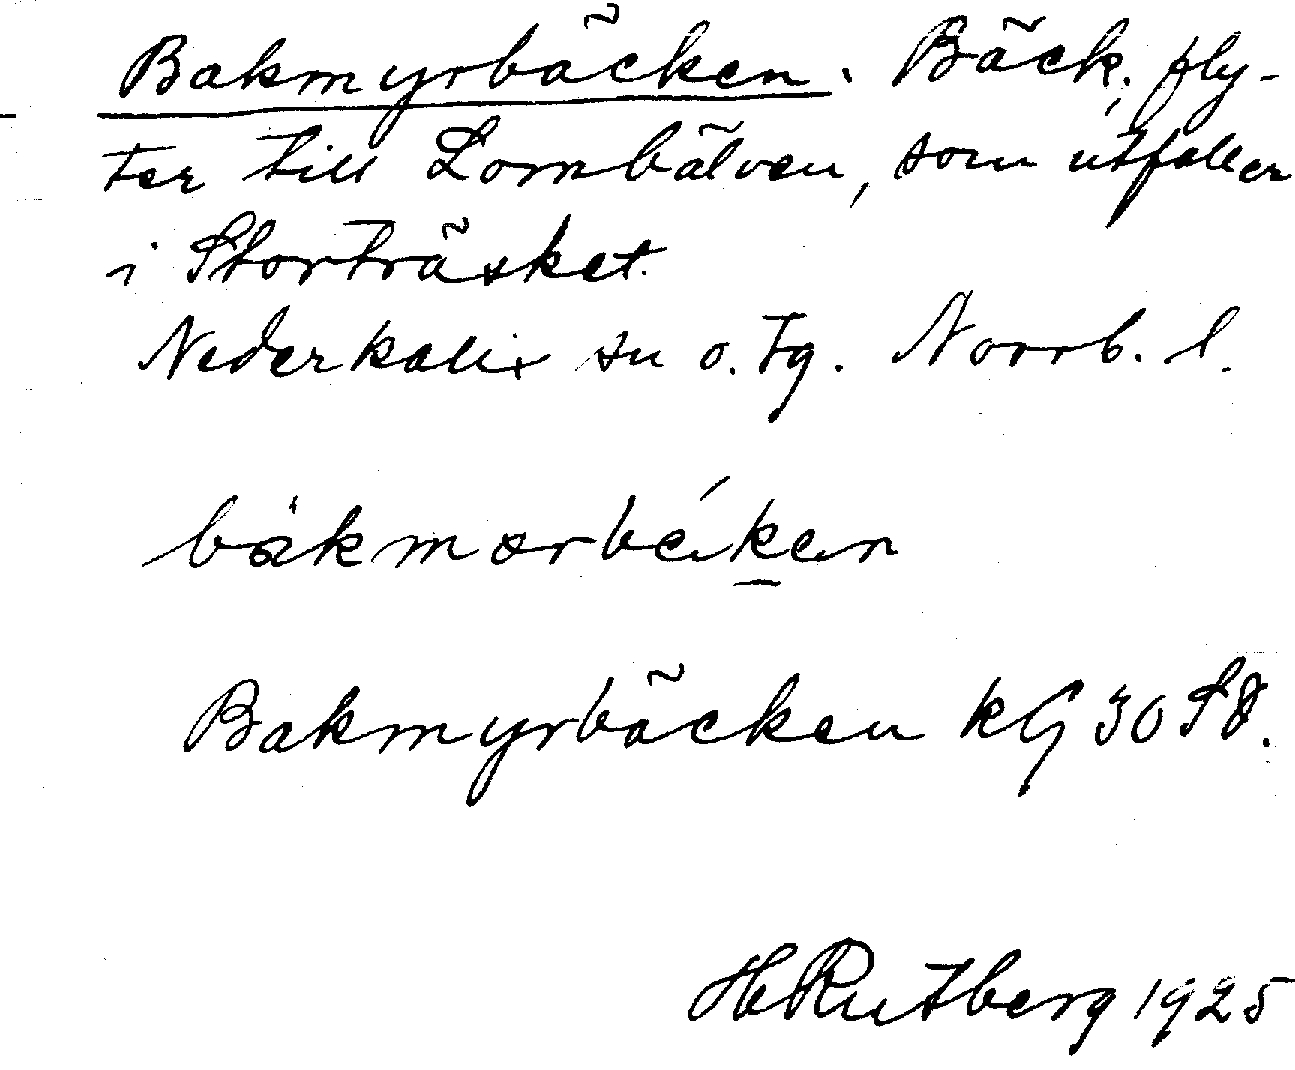 Bakmyrbäcken. Bäck, fly-
ter till Lombälven, som utfaller
i Storträsket.
Nederkalix sn o. tg. Norrb. l.
Bakmyrbäcken kG 30 SO.
H Rutberg 1925